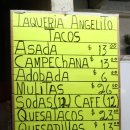 TAQUERIA ANGELITO
TACOS
ASADA $13.00
CAMPECHANA $13
ADOBADA $6
MULITAS $26
SODAS(12) CAFE(12)
QUESATACOS $23
QUESADILLAS $